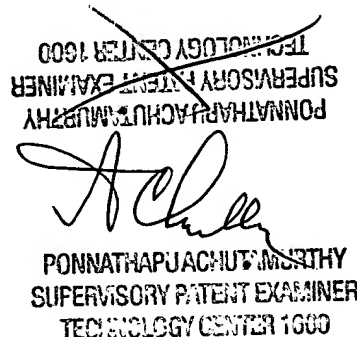 PONNATHAPU ACHUTAMURTHY
SUPERVISORY PATENT EXAMINER
TECHNOLOGY CENTER 1600
PONNATHAPU ACHUTAMURTHY
SUPERVISORY PATENT EXAMINER
TECHNOLOGY CENTER 1600